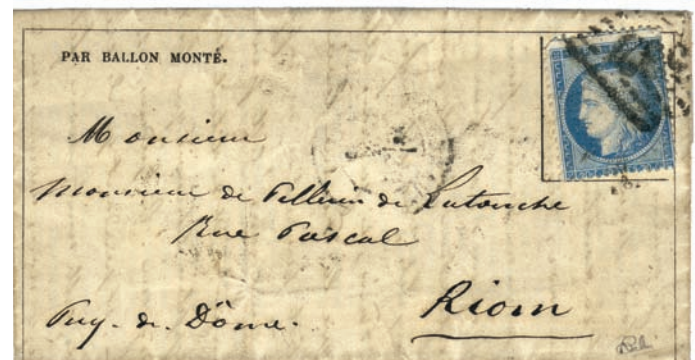 PAR BALLON MONTÉ.
Monsieur
Monsieur de Pellerin de Latouche
Rue Pascal
Riom
Puy-de-Dôme.